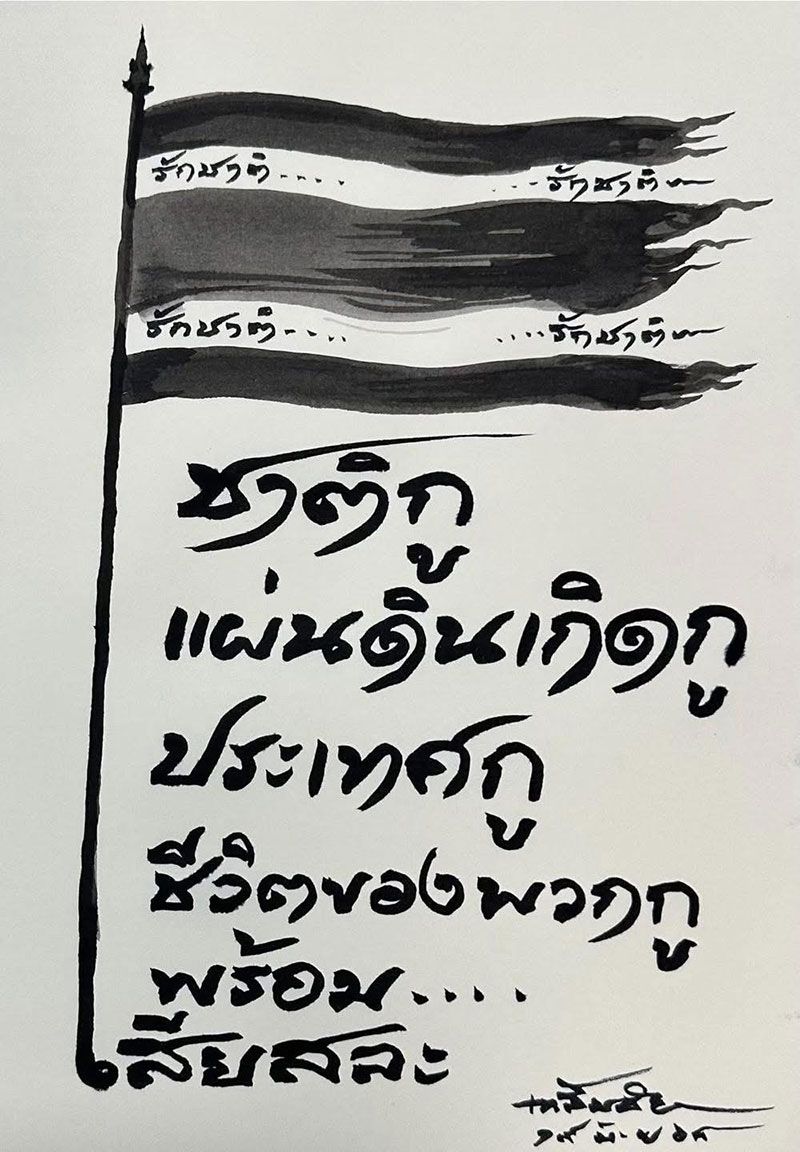 รักชาติ.... ...รักชาติ
รักชาติ.... ....รักชาติ
ชาติกู
แผ่นดินเกิดกู
ประเทศกู
ชีวิตของพวกกู
พร้อม....
เสียสละ